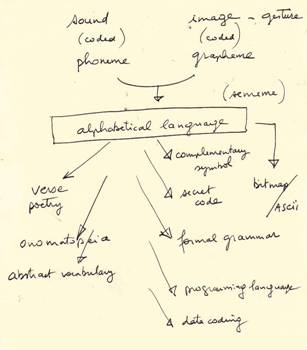 sound
(coded)
phoneme
image - gesture
(coded)
grapheme
(sememe)
alphabetical language
complementary
symbol
verse
poetry
secret
code
bitmap
/ASCII
onomatopeia
abstract vocabulary
formal grammar
programming language
data coding